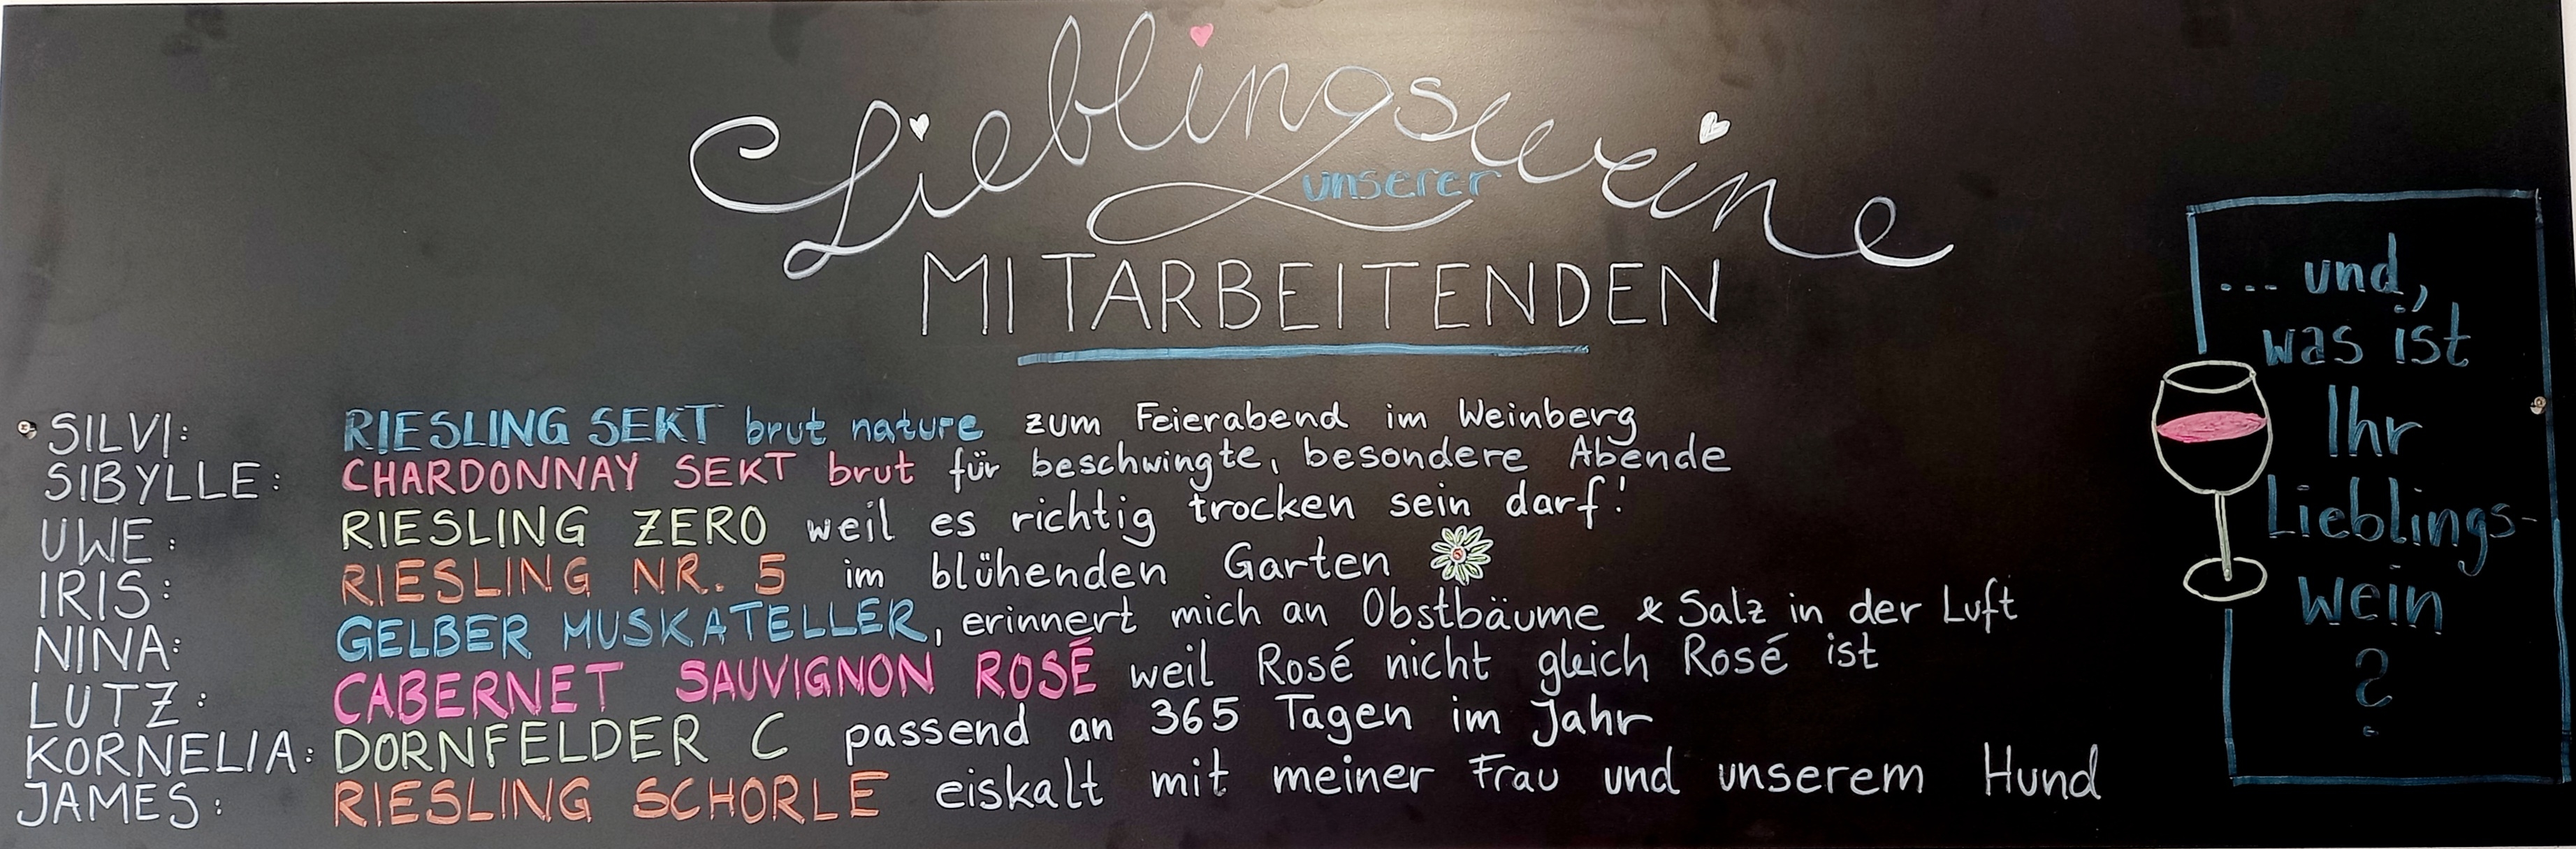 Lieblingsweine
unserer
MITARBEITENDEN
SILVI: RIESLING SEKT brut nature zum Feierabend im Weinberg
SIBYLLE: CHARDONNAY SEKT brut für beschwingte, besondere Abende
UWE: RIESLING ZERO weil es richtig trocken sein darf!
IRIS: RIESLING NR. 5 im blühenden Garten
NINA: GELBER MUSKATELLER, erinnert mich an Obstbäume & Salz in der Luft
LUTZ: CABERNET SAUVIGNON ROSÉ weil Rosé nicht gleich Rosé ist
KORNELIA: DORNFELDER C passend an 365 Tagen im Jahr
JAMES: RIESLING SCHORLE eiskalt mit meiner Frau und unserem Hund
... und,
was ist
Ihr
Lieblings-
wein
?